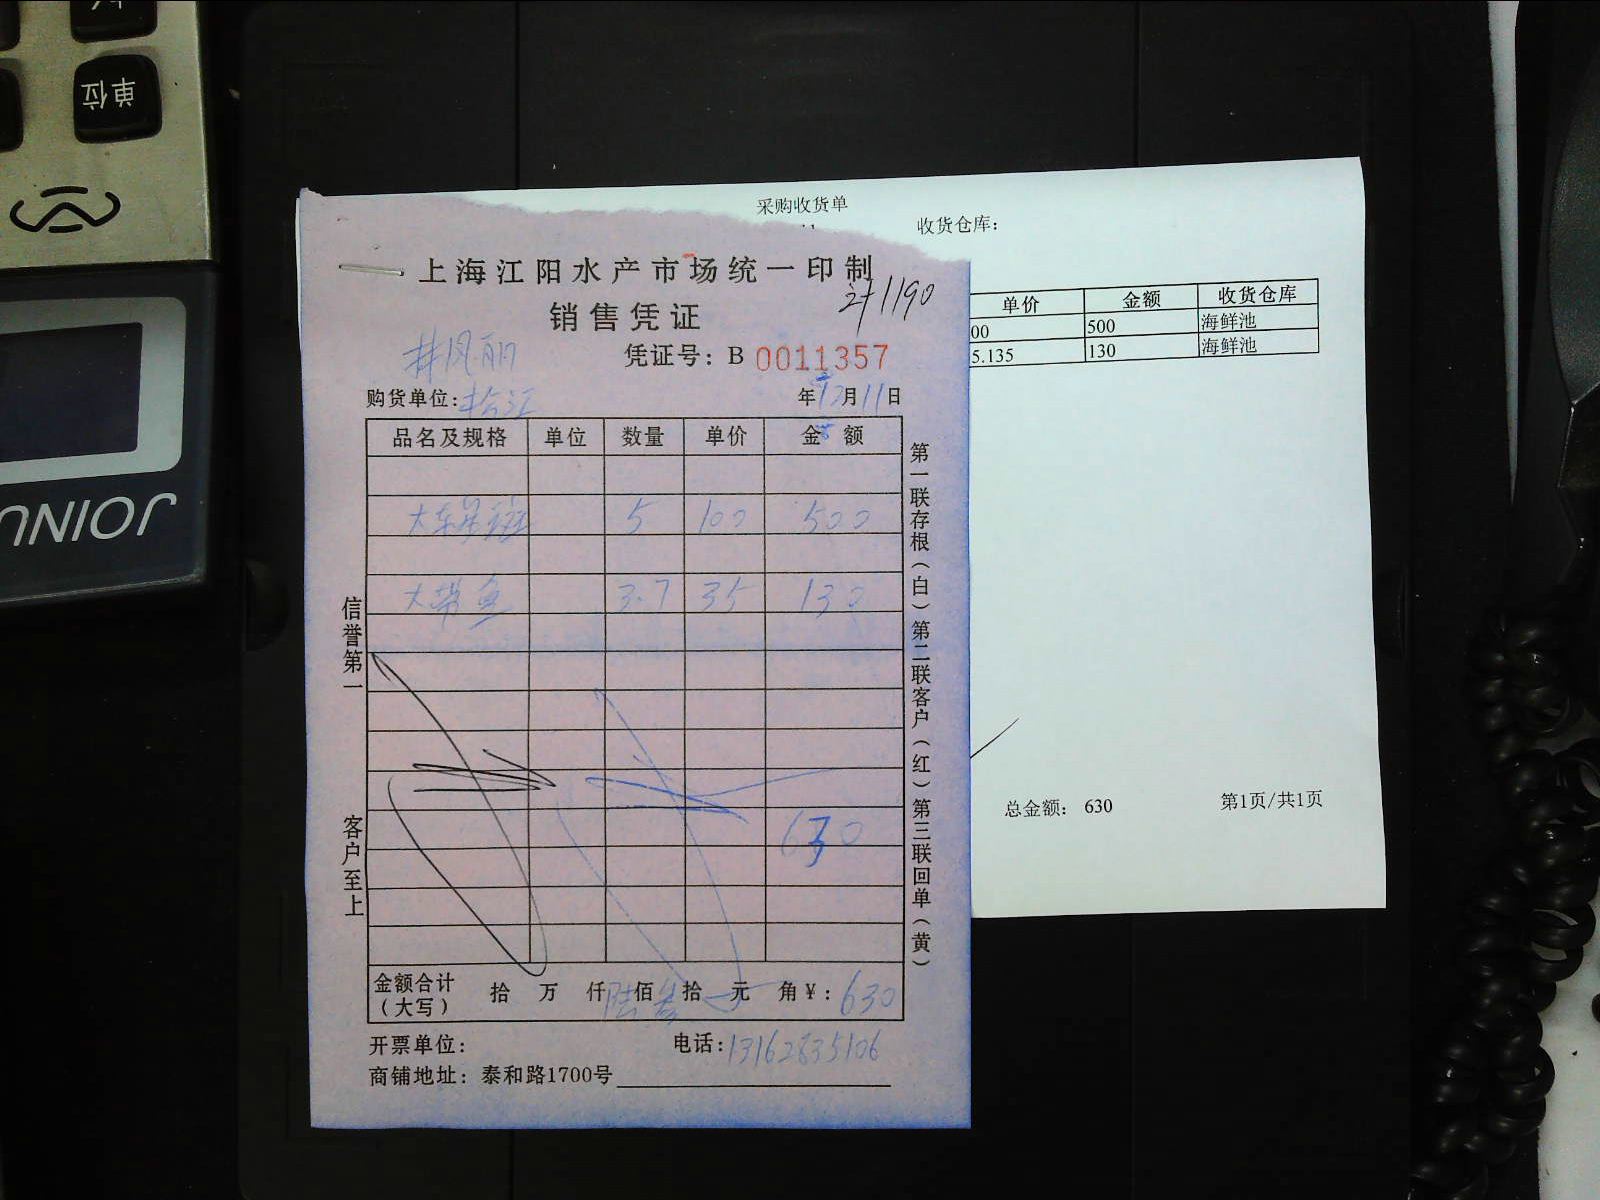 单位
JOINU
采购收货单
收货仓库：
单价 金额 收货仓库
00 500 海鲜池
5.135 130 海鲜池
总金额： 630
第1页/共1页
上海江阳水产市场统一印制
销售凭证
凭证号：B 0011357
购货单位：松江
年12月11日
品名及规格 单位 数量 单价 金额
大东星斑 5 100 500
大带鱼 3.7 35 130
630
金额合计（大写） 拾 万 仟 陆佰 叁拾 元 角￥：630
开票单位：
电话：13162835106
商铺地址：泰和路1700号
信誉第一
客户至上
第一联存根（白）第二联客户（红）第三联回单（黄）